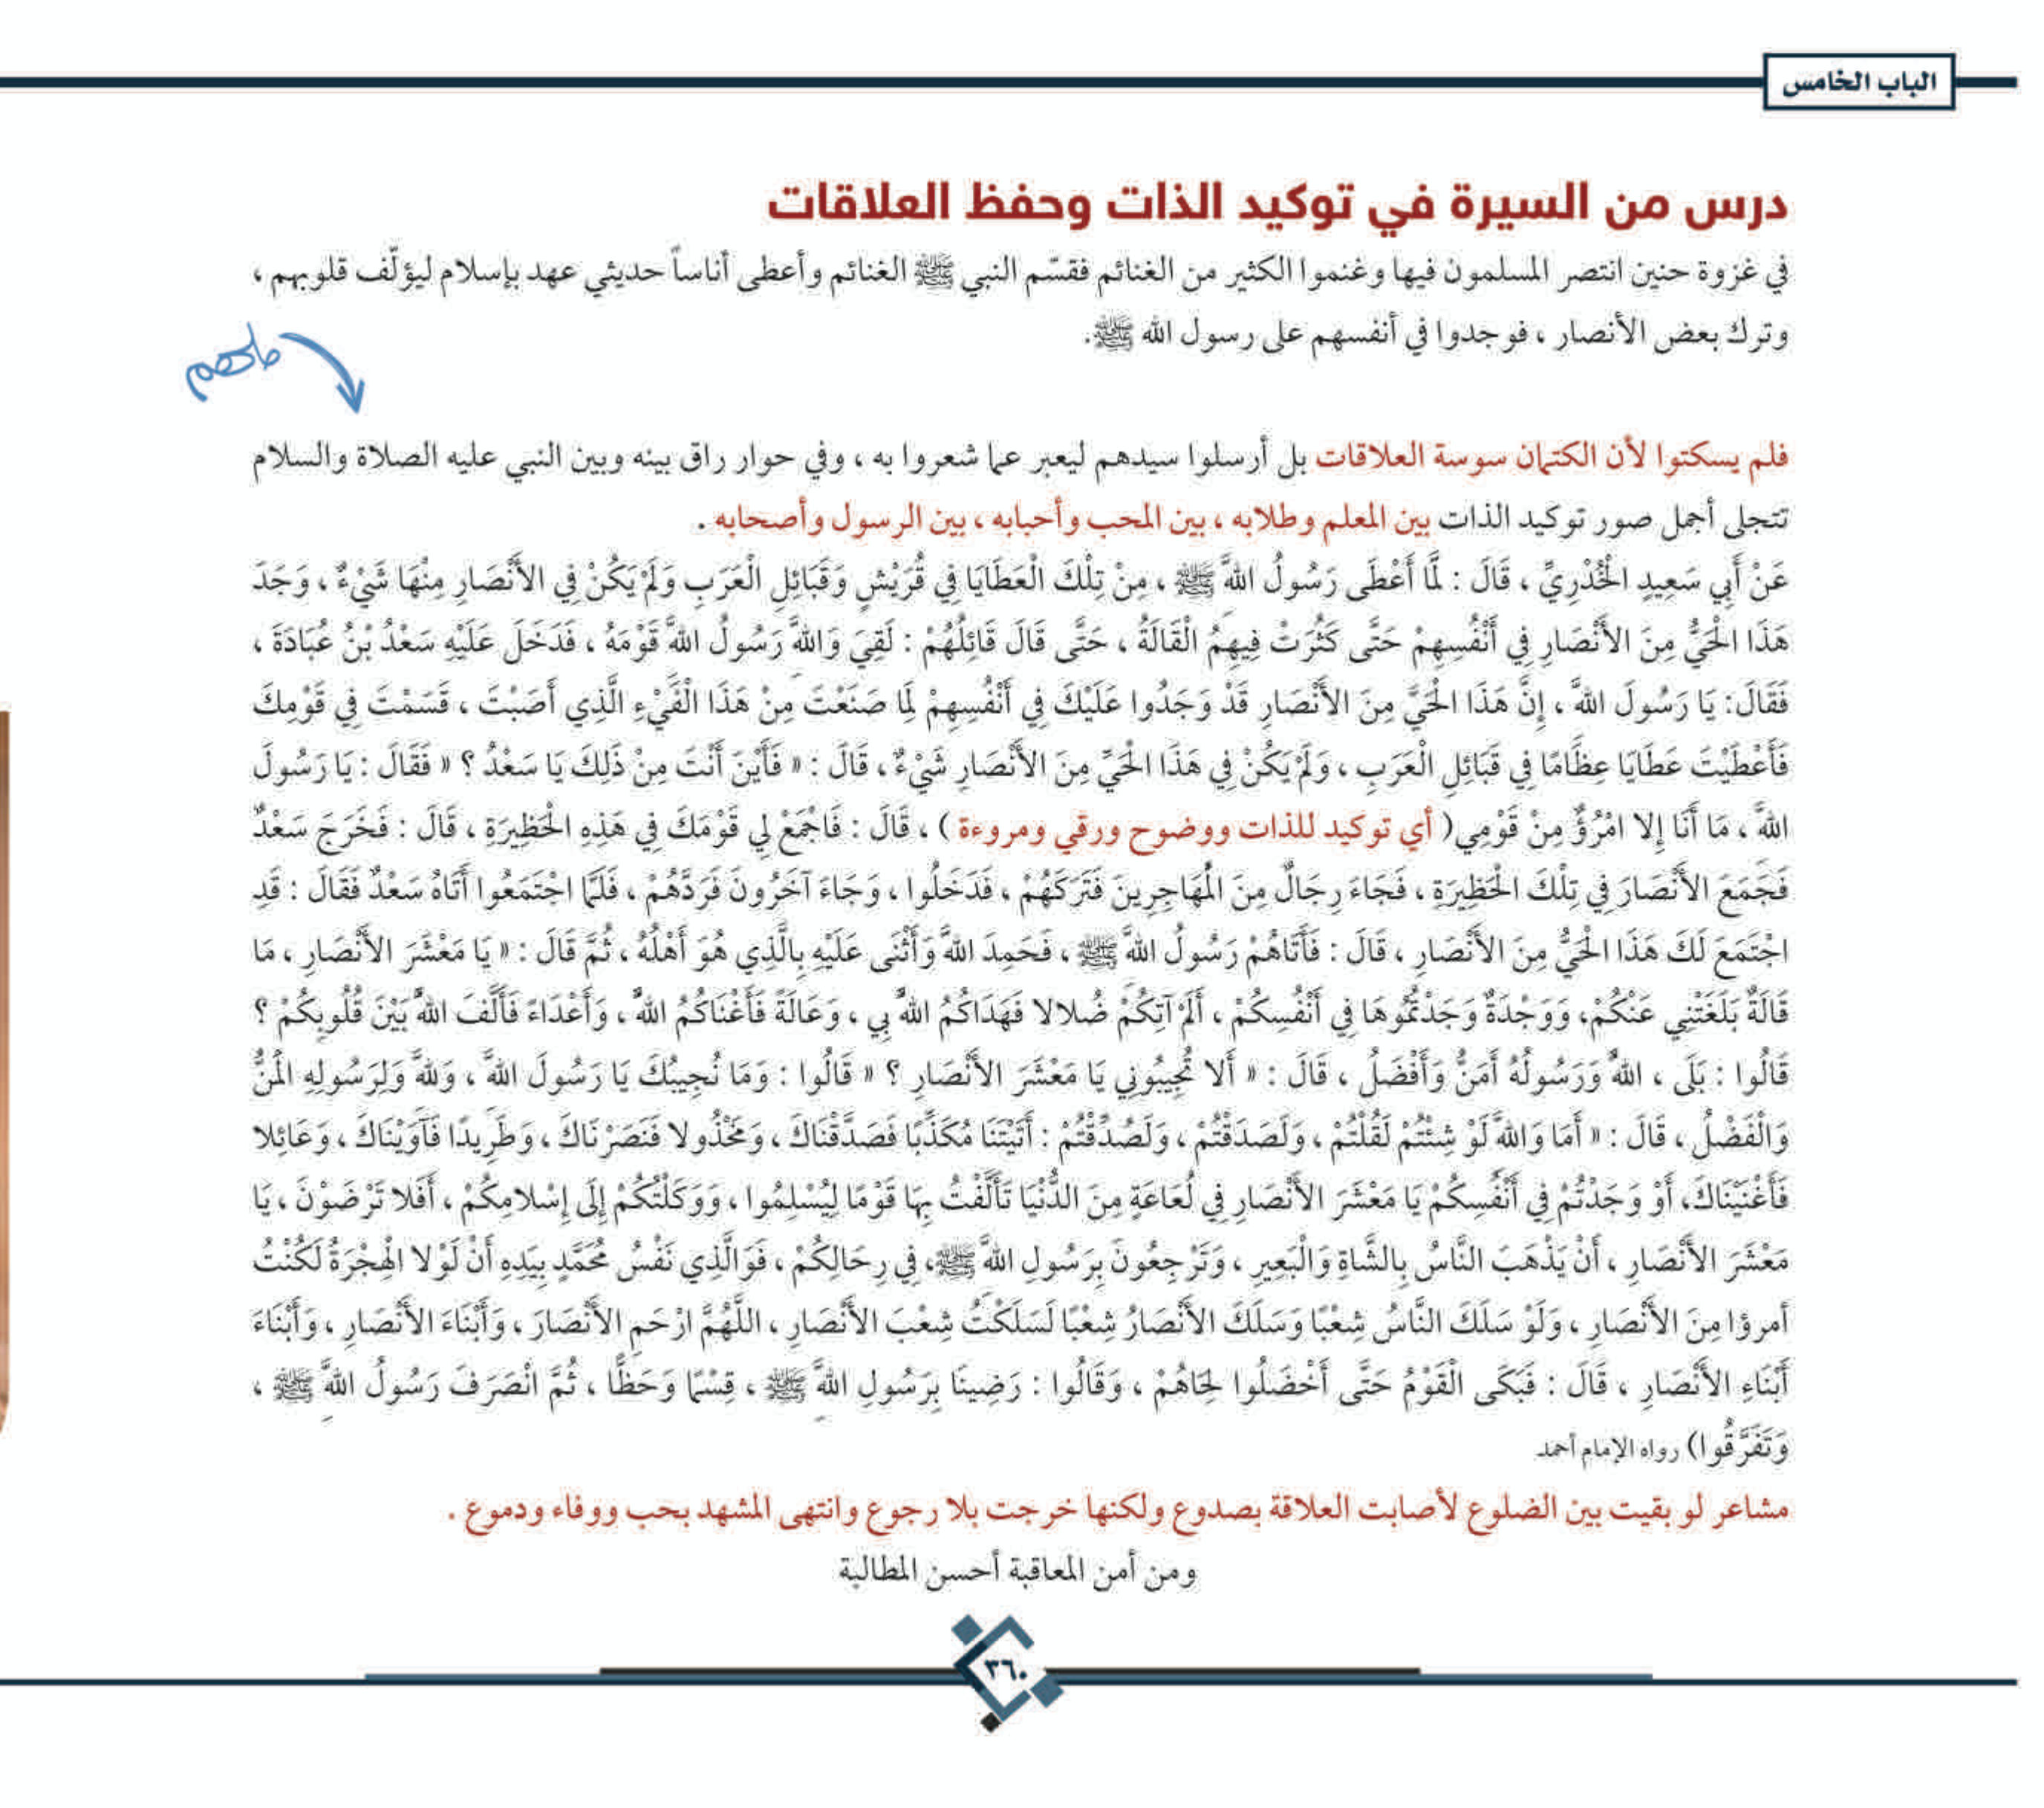 الباب الخامس
درس من السيرة في توكيد الذات وحفظ العلاقات
في غزوة حنين انتصر المسلمون فيها وغنموا الكثير من الغنائم فقسّم النبي ﷺ الغنائم وأعطى أناساً حديثي عهد بإسلام ليؤلّف قلوبهم ،
وترك بعض الأنصار ، فوجدوا في أنفسهم على رسول الله ﷺ.
فلم يسكتوا لأن الكتمان سوسة العلاقات بل أرسلوا سيدهم ليعبر عما شعروا به ، وفي حوار راق بينه وبين النبي عليه الصلاة والسلام
تتجلى أجمل صور توكيد الذات بين المعلم وطلابه ، بين المحب وأحبابه ، بين الرسول وأصحابه .
عَنْ أَبِي سَعِيدٍ الْخُدْرِيِّ ، قَالَ : لَمَّا أَعْطَى رَسُولُ اللهَّ ﷺ ، مِنْ تِلْكَ الْعَطَايَا فِي قُرَيْشٍ وَقَبَائِلِ الْعَرَبِ وَلَمْ يَكُنْ فِي الأَنْصَارِ مِنْهَا شَيْءٌ ، وَجَدَ
هَذَا الْحَيُّ مِنَ الأَنْصَارِ فِي أَنْفُسِهِمْ حَتَّى كَثُرَتْ فِيهِمُ الْقَالَةُ ، حَتَّى قَالَ قَائِلُهُمْ : لَقِيَ وَاللهَِّ رَسُولُ اللهَِّ قَوْمَهُ ، فَدَخَلَ عَلَيْهِ سَعْدُ بْنُ عُبَادَةَ ،
فَقَالَ: يَا رَسُولَ اللهَّ ، إِنَّ هَذَا الْحَيَّ مِنَ الأَنْصَارِ قَدْ وَجَدُوا عَلَيْكَ فِي أَنْفُسِهِمْ لِمَا صَنَعْتَ مِنْ هَذَا الْفَيْءِ الَّذِي أَصَبْتَ ، قَسَمْتَ فِي قَوْمِكَ
فَأَعْطَيْتَ عَطَايَا عِظَامًا فِي قَبَائِلِ الْعَرَبِ ، وَلَمْ يَكُنْ فِي هَذَا الْحَيِّ مِنَ الأَنْصَارِ شَيْءٌ ، قَالَ : « فَأَيْنَ أَنْتَ مِنْ ذَلِكَ يَا سَعْدُ ؟ « فَقَالَ : يَا رَسُولَ
اللهَّ ، مَا أَنَا إِلا امْرُؤٌ مِنْ قَوْمِي( أي توكيد للذات ووضوح ورقي ومروءة ) ، قَالَ : فَاجْمَعْ لِي قَوْمَكَ فِي هَذِهِ الْحَظِيرَةِ ، قَالَ : فَخَرَجَ سَعْدٌ
فَجَمَعَ الأَنْصَارَ فِي تِلْكَ الْحَظِيرَةِ ، فَجَاءَ رِجَالٌ مِنَ الْمُهَاجِرِينَ فَتَرَكَهُمْ ، فَدَخَلُوا ، وَجَاءَ آخَرُونَ فَرَدَّهُمْ ، فَلَمَّا اجْتَمَعُوا أَتَاهُ سَعْدٌ فَقَالَ : قَدِ
اجْتَمَعَ لَكَ هَذَا الْحَيُّ مِنَ الأَنْصَارِ ، قَالَ : فَأَتَاهُمْ رَسُولُ اللهَّ ﷺ ، فَحَمِدَ اللهَّ وَأَثْنَى عَلَيْهِ بِالَّذِي هُوَ أَهْلُهُ ، ثُمَّ قَالَ : « يَا مَعْشَرَ الأَنْصَارِ ، مَا
قَالَةٌ بَلَغَتْنِي عَنْكُمْ، وَوَجْدَةٌ وَجَدْتُمُوهَا فِي أَنْفُسِكُمْ ، أَلَمْ آتِكُمْ ضُلالا فَهَدَاكُمُ اللهَُّ بِي ، وَعَالَةً فَأَغْنَاكُمُ اللهَُّ ، وَأَعْدَاءً فَأَلَّفَ اللهَُّ بَيْنَ قُلُوبِكُمْ ؟
قَالُوا : بَلَى ، اللهَُّ وَرَسُولُهُ أَمَنُّ وَأَفْضَلُ ، قَالَ : « أَلا تُجِيبُونِي يَا مَعْشَرَ الأَنْصَارِ ؟ « قَالُوا : وَمَا نُجِيبُكَ يَا رَسُولَ اللهَّ ، وَللهَّ وَلِرَسُولِهِ الْمَنُّ
وَالْفَضْلُ ، قَالَ : « أَمَا وَاللهَِّ لَوْ شِئْتُمْ لَقُلْتُمْ ، وَلَصَدَقْتُمْ ، وَلَصُدِّقْتُمْ : أَتَيْتَنَا مُكَذَّبًا فَصَدَّقْنَاكَ ، وَمَخْذُولا فَنَصَرْنَاكَ ، وَطَرِيدًا فَآوَيْنَاكَ ، وَعَائِلا
فَأَغْنَيْنَاكَ، أَوْ وَجَدْتُمْ فِي أَنْفُسِكُمْ يَا مَعْشَرَ الأَنْصَارِ فِي لُعَاعَةٍ مِنَ الدُّنْيَا تَأَلَّفْتُ بِهَا قَوْمًا لِيُسْلِمُوا ، وَوَكَلْتُكُمْ إِلَى إِسْلامِكُمْ ، أَفَلا تَرْضَوْنَ ، يَا
مَعْشَرَ الأَنْصَارِ ، أَنْ يَذْهَبَ النَّاسُ بِالشَّاةِ وَالْبَعِيرِ ، وَتَرْجِعُونَ بِرَسُولِ اللهَّ ﷺ، فِي رِحَالِكُمْ ، فَوَالَّذِي نَفْسُ مُحَمَّدٍ بِيَدِهِ أَنْ لَوْلا الْهِجْرَةُ لَكُنْتُ
أمرؤا مِنَ الأَنْصَارِ ، وَلَوْ سَلَكَ النَّاسُ شِعْبًا وَسَلَكَ الأَنْصَارُ شِعْبًا لَسَلَكْتُ شِعْبَ الأَنْصَارِ ، اللَّهُمَّ ارْحَمِ الأَنْصَارَ ، وَأَبْنَاءَ الأَنْصَارِ ، وَأَبْنَاءَ
أَبْنَاءِ الأَنْصَارِ ، قَالَ : فَبَكَى الْقَوْمُ حَتَّى أَخْضَلُوا لِحَاهُمْ ، وَقَالُوا : رَضِينَا بِرَسُولِ اللهَِّ ﷺ ، قِسْمًا وَحَظًّا ، ثُمَّ انْصَرَفَ رَسُولُ اللهَِّ ﷺ ،
وَتَفَرَّقُوا) رواه الإمام أحمد
مشاعر لو بقيت بين الضلوع لأصابت العلاقة بصدوع ولكنها خرجت بلا رجوع وانتهى المشهد بحب ووفاء ودموع .
ومن أمن المعاقبة أحسن المطالبة
٣٦٠